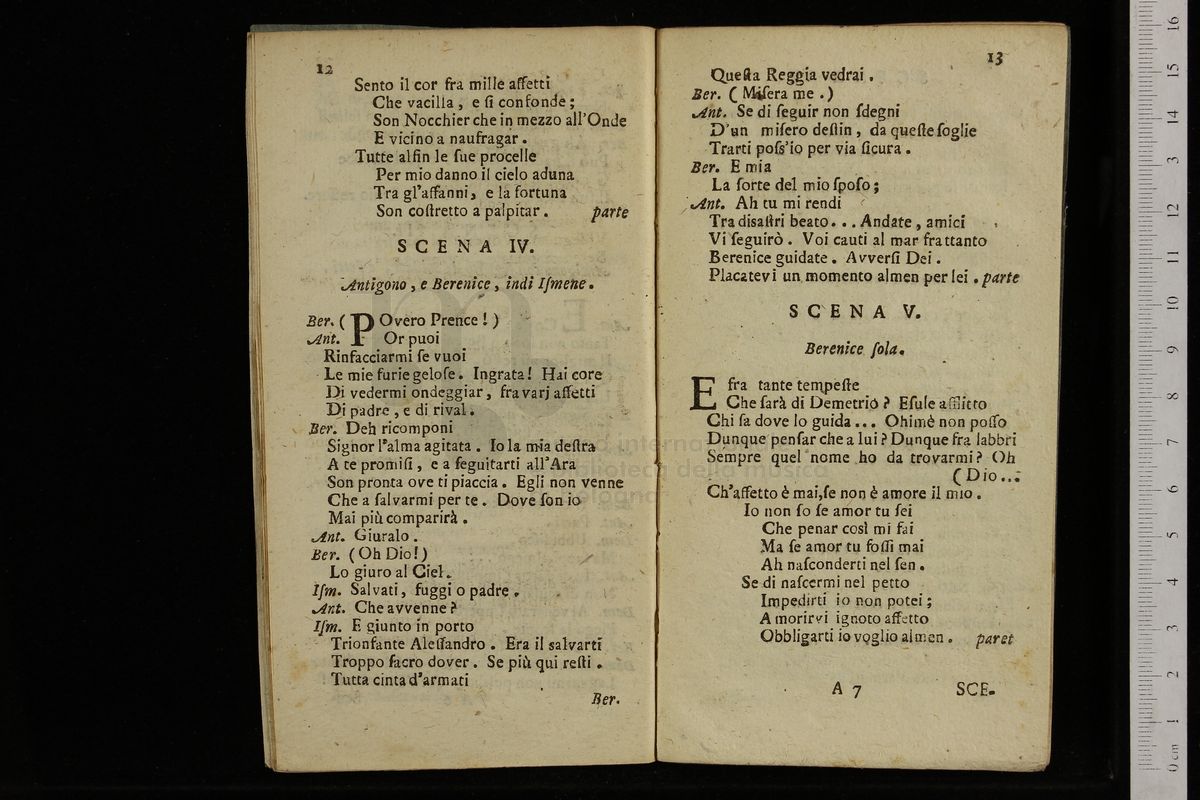 12
Sento il cor fra mille affetti
Che vacilla, e ſi confonde;
Son Nocchier che in mezzo all'Onde
E vicino a naufragar.
Tutte alfin le ſue procelle
Per mio danno il cielo aduna
Tra gl'affanni, e la fortuna
Son coſtretto a palpitar. parte
SCENA IV.
Antigono, e Berenice, indi Iſmene.
Ber. (POvero Prence!)
Ant. Or puoi
Rinfacciarmi ſe vuoi
Le mie furie geloſe. Ingrata! Hai core
Di vedermi ondeggiar, fra varj affetti
Di padre, e di rival.
Ber. Deh ricomponi
Signor l'alma agitata. Io la mia deſtra
A te promiſi, e a ſeguitarti all'Ara
Son pronta ove ti piaccia. Egli non venne
Che a ſalvarmi per te. Dove ſon io
Mai più comparirà.
Ant. Giuralo.
Ber. (Oh Dio!)
Lo giuro al Ciel.
Iſm. Salvati, fuggi o padre.
Ant. Che avvenne?
Iſm. E giunto in porto
Trionfante Aleſſandro. Era il salvarti
Troppo ſacro dover. Se più qui reſti.
Tutta cinta d'armati
Ber.
13
Queſta Reggia vedrai.
Ber. (Miſera me.)
Ant. Se di ſeguir non ſdegni
D'un miſero deſtin, da queſte ſoglie
Trarti poſs'io per via ſicura.
Ber. E mia
La ſorte del mio ſpoſo;
Ant. Ah tu mi rendi
Tra disaſtri beato... Andate, amici
Vi ſeguirò. Voi cauti al mar frattanto
Berenice guidate. Avverſi Dei.
Placatevi un momento almen per lei. parte
SCENA V.
Berenice ſola.
E fra tante tempeſte
Che ſarà di Demetrio? Eſule afflitto
Chi ſa dove lo guida... Ohimè non poſſo
Dunque penſar che a lui? Dunque fra labbri
Sempre quel nome ho da trovarmi? Oh
(Dio...:
Ch'affetto è mai, ſe non è amore il mio.
Io non ſo ſe amor tu ſei
Che penar così mi fai
Ma ſe amor tu foſſi mai
Ah naſconderti nel ſen.
Se di naſcermi nel petto
Impedirti io non potei;
A morirvi ignoto affetto
Obbligarti io voglio almen. paret
A 7
SCE.